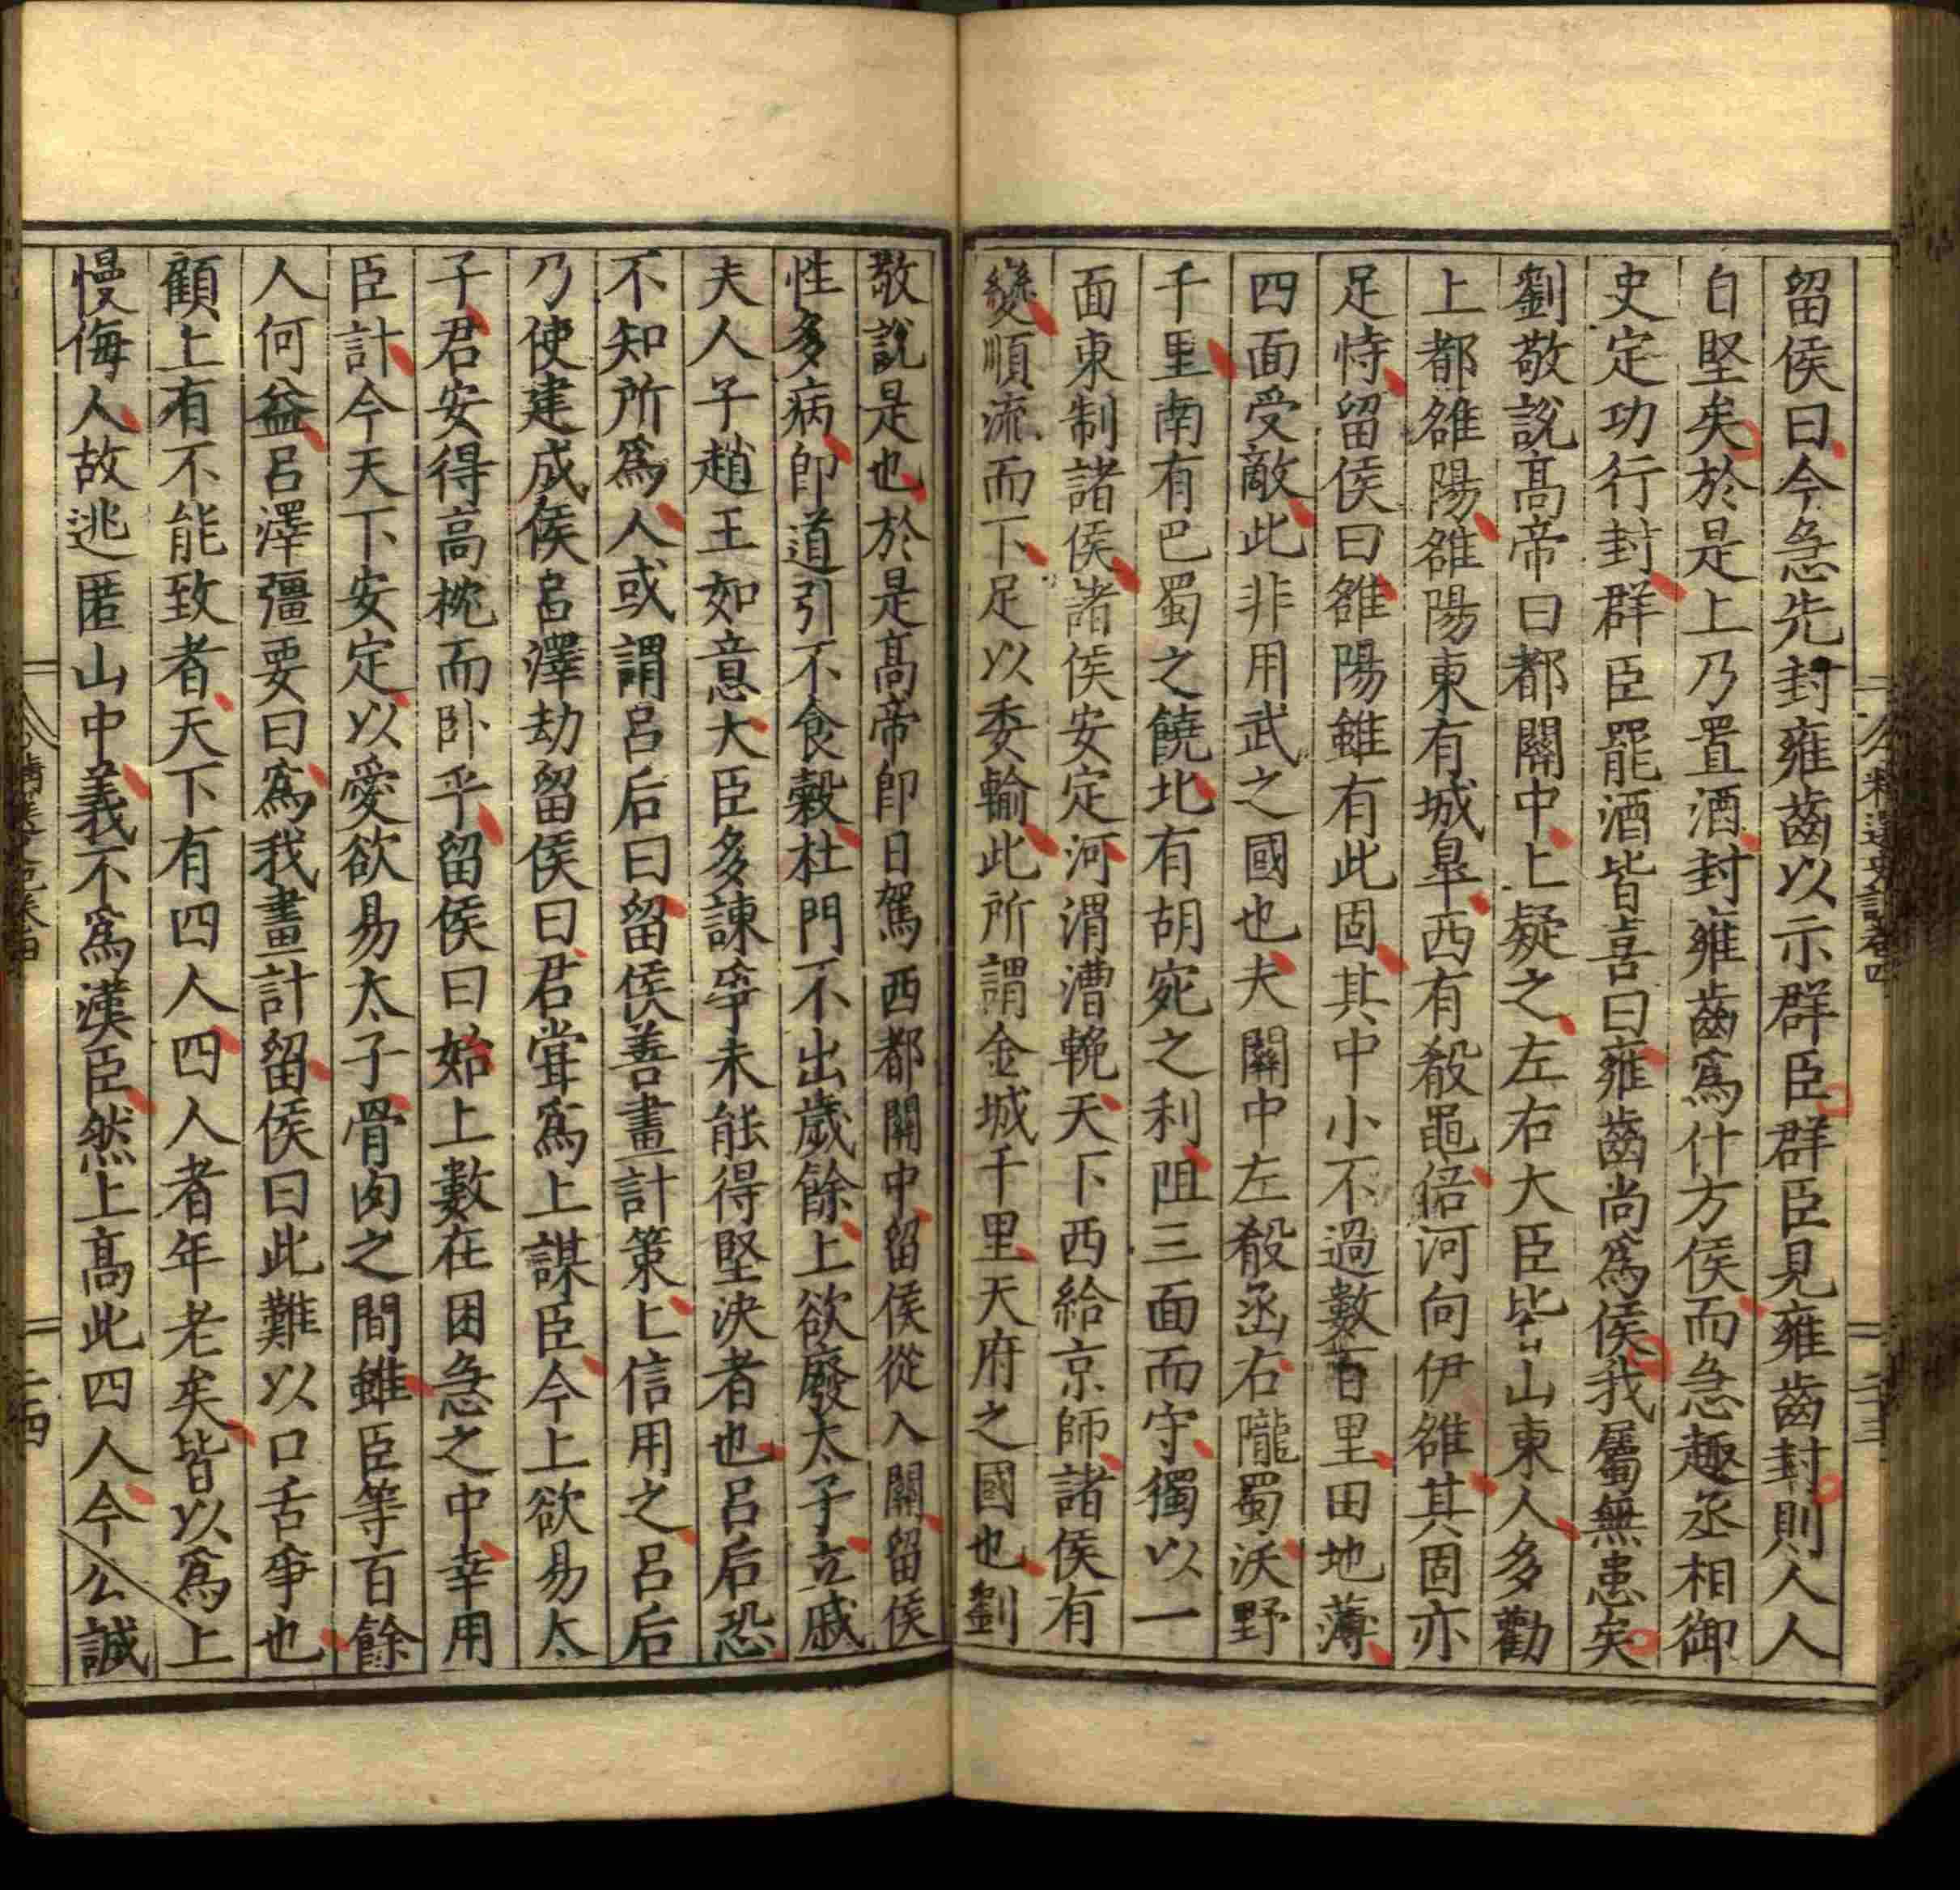 留侯曰今急先封雍齒以示群臣群臣見雍齒封則人人
自堅矣於是上乃置酒封雍齒爲什方侯而急趣丞相御
史定功行封群臣罷酒皆喜曰雍齒尚爲侯我屬無患矣
劉敬說高帝曰都關中上疑之左右大臣皆山東人多勸
上都雒陽雒陽東有城皐西有殽黽倍河向伊雒其固亦
足恃留侯曰雒陽雖有此固其中小不過數百里田地薄
四面受敵此非用武之國也夫關中左殽函右隴蜀沃野
千里南有巴蜀之饒北有胡宛之利阻三面而守獨以一
面東制諸侯諸侯安定河渭漕輓天下西給京師諸侯有
變順流而下足以委輸此所謂金城千里天府之國也劉
敬說是也於是高帝卽日駕西都關中留侯從入關留侯
性多病卽道引不食穀杜門不出歲餘上欲廢太子立戚
夫人子趙王如意大臣多諫爭未能得堅決者也呂后恐
不知所爲人或謂呂后曰留侯善畫計策上信用之呂后
乃使建成侯呂澤劫留侯曰君常爲上謀臣今上欲易太
子君安得高枕而卧乎留侯曰始上數在困急之中幸用
臣計今天下安定以愛欲易太子骨肉之間雖臣等百餘
人何益呂澤彊要曰爲我畫計留侯曰此難以口舌爭也
顧上有不能致者天下有四人四人者年老矣皆以爲上
慢侮人故逃匿山中義不爲漢臣然上高此四人今公誠
精選史記卷四
二十三
二四